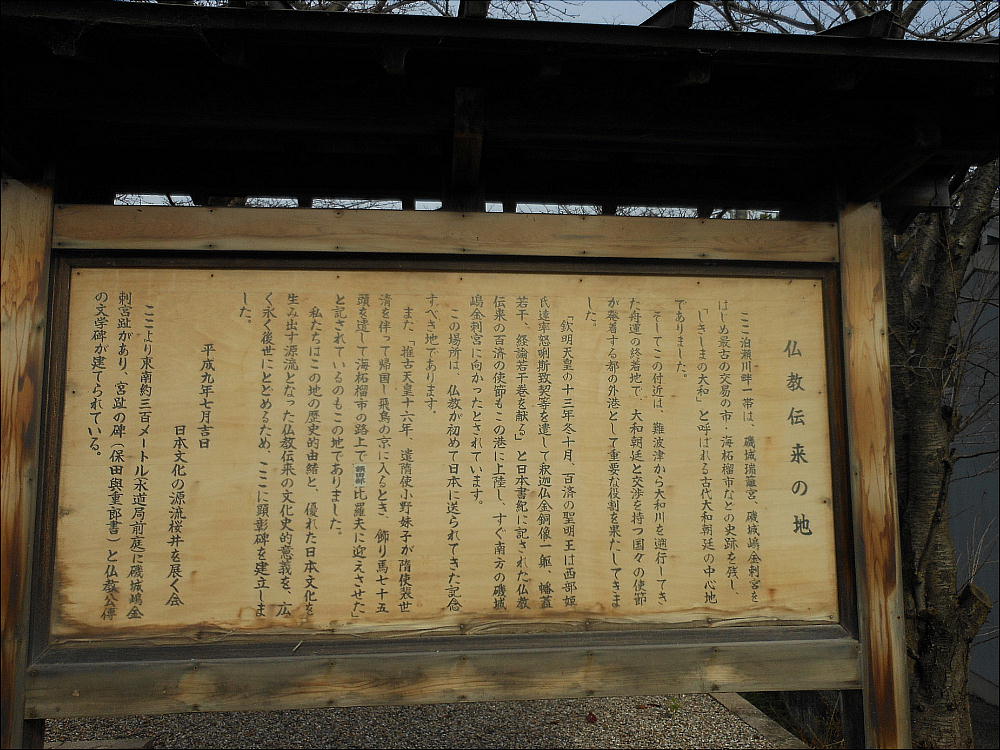 仏教伝来の地
ここ泊瀬川畔一帯は、磯城瑞籬宮、磯城嶋金刺宮を
はじめ最古の交易の市・海柘榴市などの史跡を残し、
「しきしまの大和」と呼ばれる古代大和朝廷の中心地
でありました。
そしてこの付近は、難波津から大和川を遡行してき
た舟運の終着地で、大和朝廷と交渉を持つ国々の使節
が発着する都の外港として重要な役割を果たしてきま
した。
「欽明天皇の十三年冬十月、百済の聖明王は西部姫
氏達率怒唎斯致契等を遣して釈迦仏金銅像一躯、幡蓋
若干、経論若干巻を献る」と日本書紀に記された仏教
伝来の百済の使節もこの港に上陸し、すぐ南方の磯城
嶋金刺宮に向かったとされています。
この場所は、仏教が初めて日本に送られてきた記念
すべき地であります。
また、「推古天皇十六年、遣隋使小野妹子が隋使裴世
清を伴って帰国し飛鳥の京に入るとき、飾り馬七十五
頭を遣して海柘榴市の路上で額田部比羅夫に迎えさせた」
と記されているのもこの地でありました。
私たちはこの地の歴史的由緒と、優れた日本文化を
生み出す源流となった仏教伝来の文化史的意義を、広
く永く後世にとどめるため、ここに顕彰碑を建立しま
した。
平成九年七月吉日
日本文化の源流桜井を展く会
ここより東南約三百メートル水道局前庭に磯城嶋金
刺宮趾があり、宮趾の碑(保田與重郎書)と仏教公傳
の文学碑が建てられている。